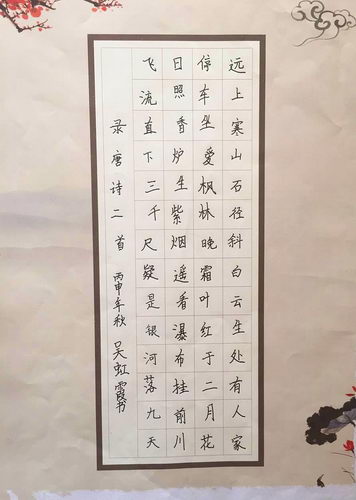 远上寒山石径斜白云生处有人家
停车坐爱枫林晚霜叶红于二月花
日照香炉生紫烟遥看瀑布挂前川
飞流直下三千尺疑是银河落九天
录唐诗二首 丙申年秋 吴虹霞书